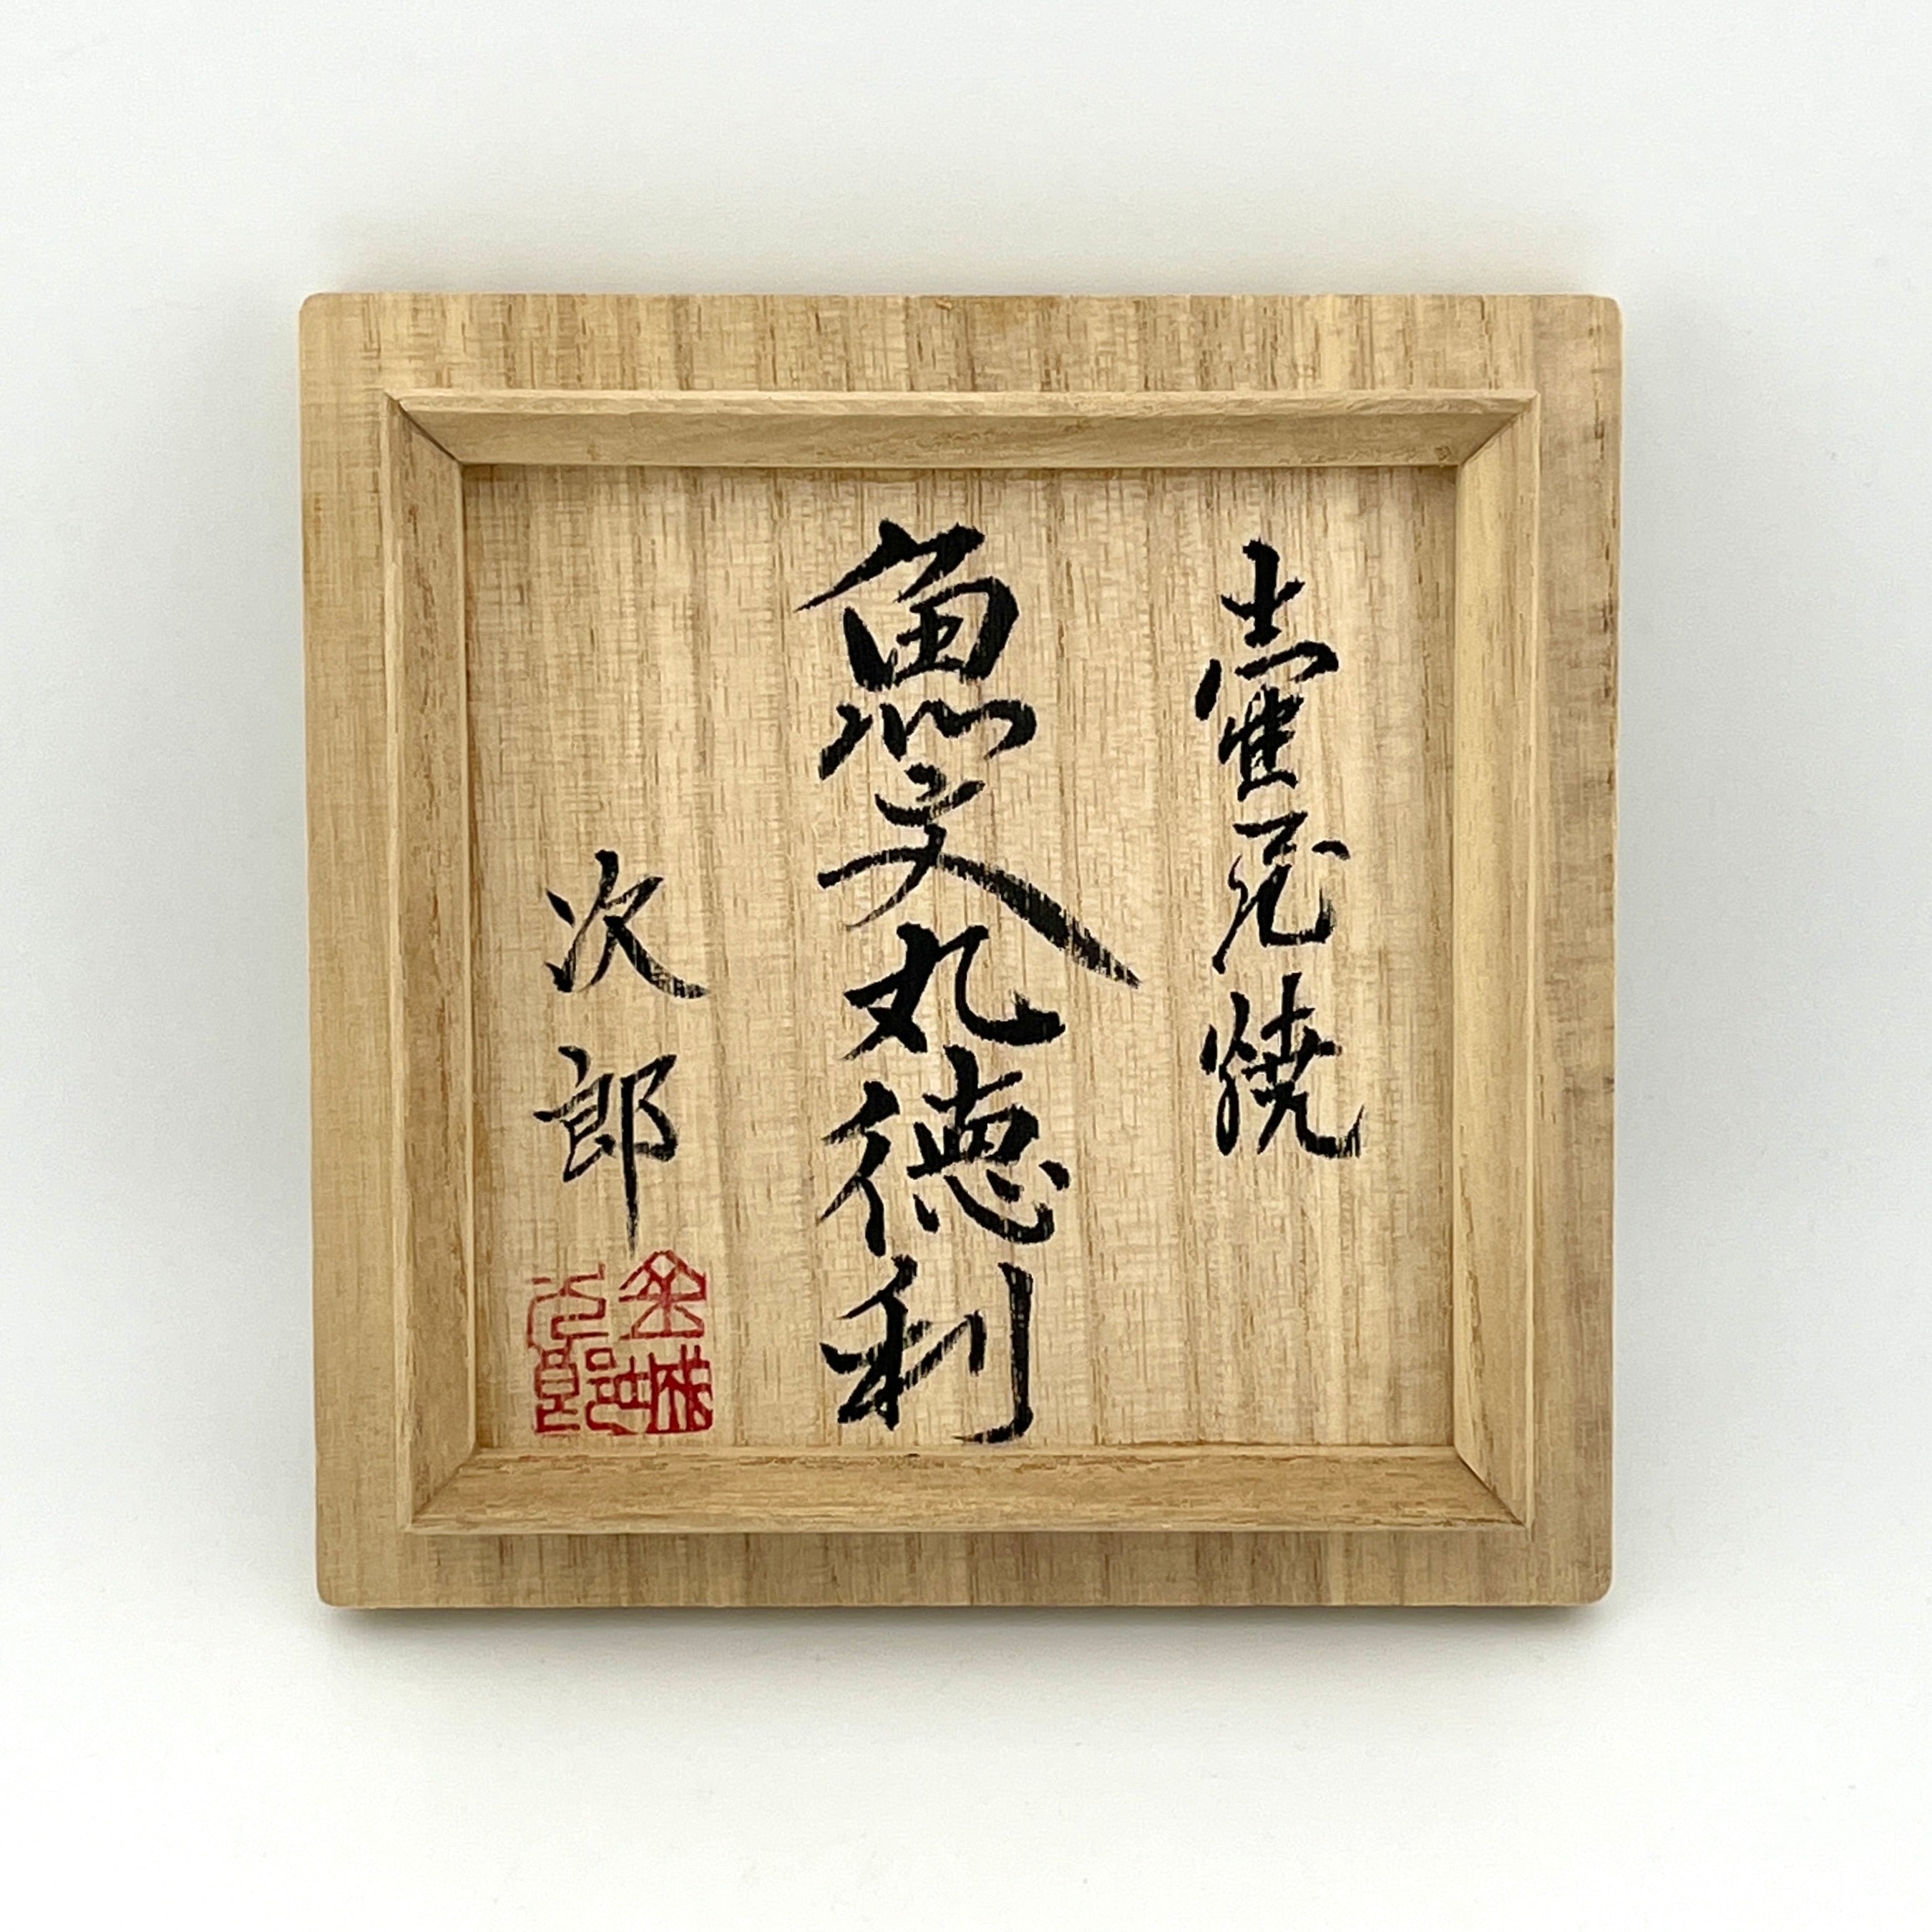 壷屋焼
魚文丸徳利
次郎
金城次郎